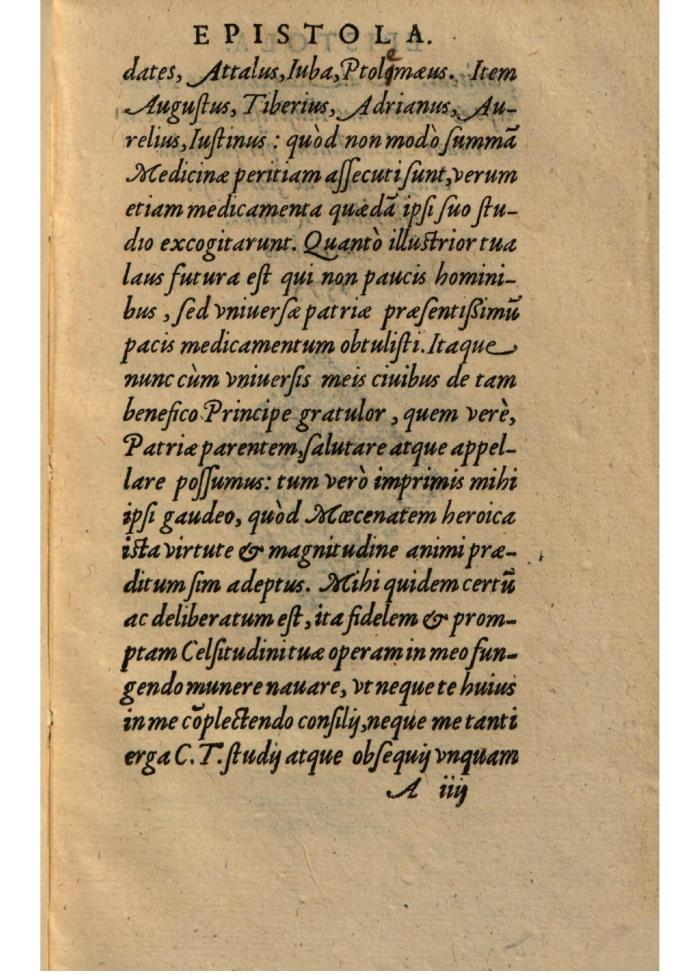 EPISTOLA.
dates, Attalus, Iuba, Ptolemæus. Item
Augustus, Tiberius, Adrianus, Au-
relius, Iustinus : quòd non modò summā
Medicinæ peritiam assecuti sunt, verum
etiam medicamenta quædā ipsi suo stu-
dio excogitarunt. Quantò illustrior tua
laus futura est qui non paucis homini-
bus , sed vniuersæ patriæ præsentissimū
pacis medicamentum obtulisti. Itaque
nunc cùm vniuersis meis ciuibus de tam
benefico Principe gratulor , quem verè,
Patriæ parentem, salutare atque appel-
lare possumus: tum verò imprimis mihi
ipsi gaudeo, quòd Mœcenatem heroica
ista virtute & magnitudine animi præ-
ditum sim adeptus. Mihi quidem certū
ac deliberatum est, ita fidelem & prom-
ptam Celsitudini tuæ operam in meo fun-
gendo munere nauare, vt neque te huius
in me cōplectendo consilij, neque me tanti
erga C. T. studij atque obsequij vnquam
A iiij